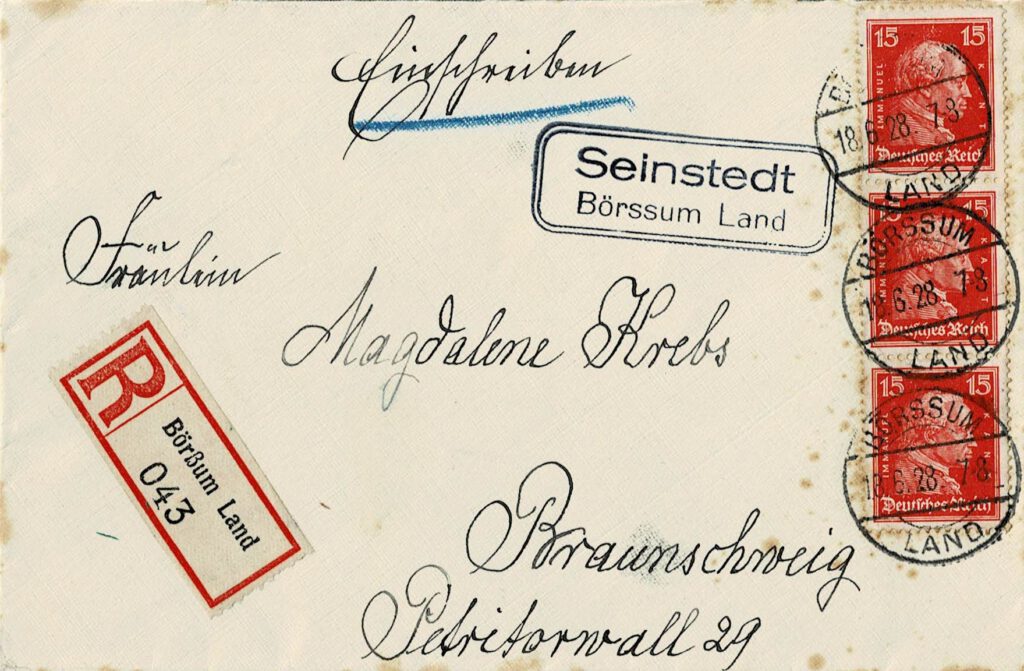 Einschreiben
Seinstedt
Börssum Land
Fräulein
Magdalene Krebs
Braunschweig
Petritorwall 29
R
Börßum Land
043
15 15
IMMANUEL KANT
Deutsches Reich
18.6.28 7-8
LAND
15
IMMANUEL KANT
Deutsches Reich
BÖRSSUM
18.6.28 7-8
LAND
15 15
IMMANUEL KANT
Deutsches Reich
BÖRSSUM
18.6.28 7-8
LAND